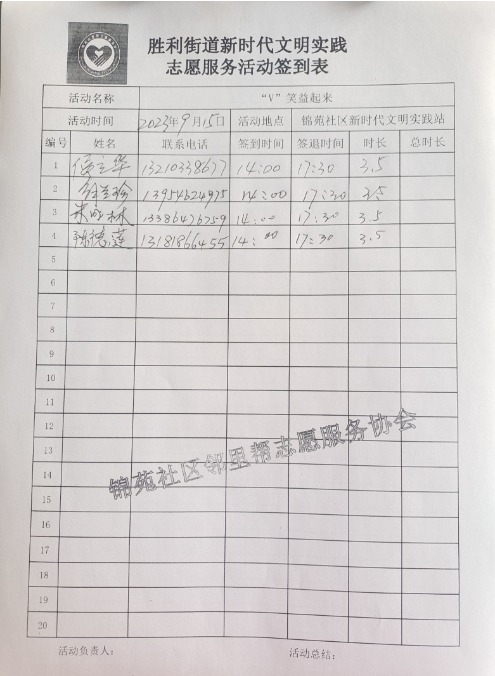 胜利街道新时代文明实践
志愿服务活动签到表
活动名称 “V”笑益起来
活动时间 2023年9月15日 活动地点 锦苑社区新时代文明实践站
编号 姓名 联系电话 签到时间 签退时间 时长 总时长
1 13210338677 14:00 17:30 3.5
2 13954624975 14:00 17:30 3.5
3 13386426759 14:00 17:30 3.5
4 13181866455 14:00 17:30 3.5
5
6
7
8
9
10
11
12
13
14
15
16
17
18
19
20
锦苑社区邻里帮志愿服务协会
活动负责人： 活动总结：